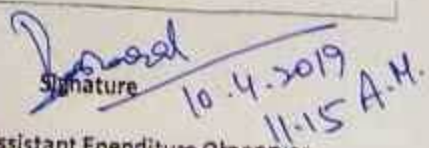 Signature
10.4.2019
11.15 A.M.
Assistant Ependiture